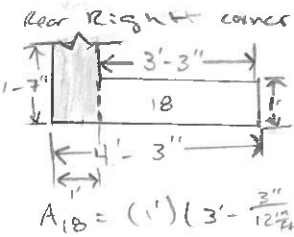 Rear Right corner
3'-3"
1-7"
18
1'
4'- 3"
1'
A18 = (1')(3'- 3"/12in/ft